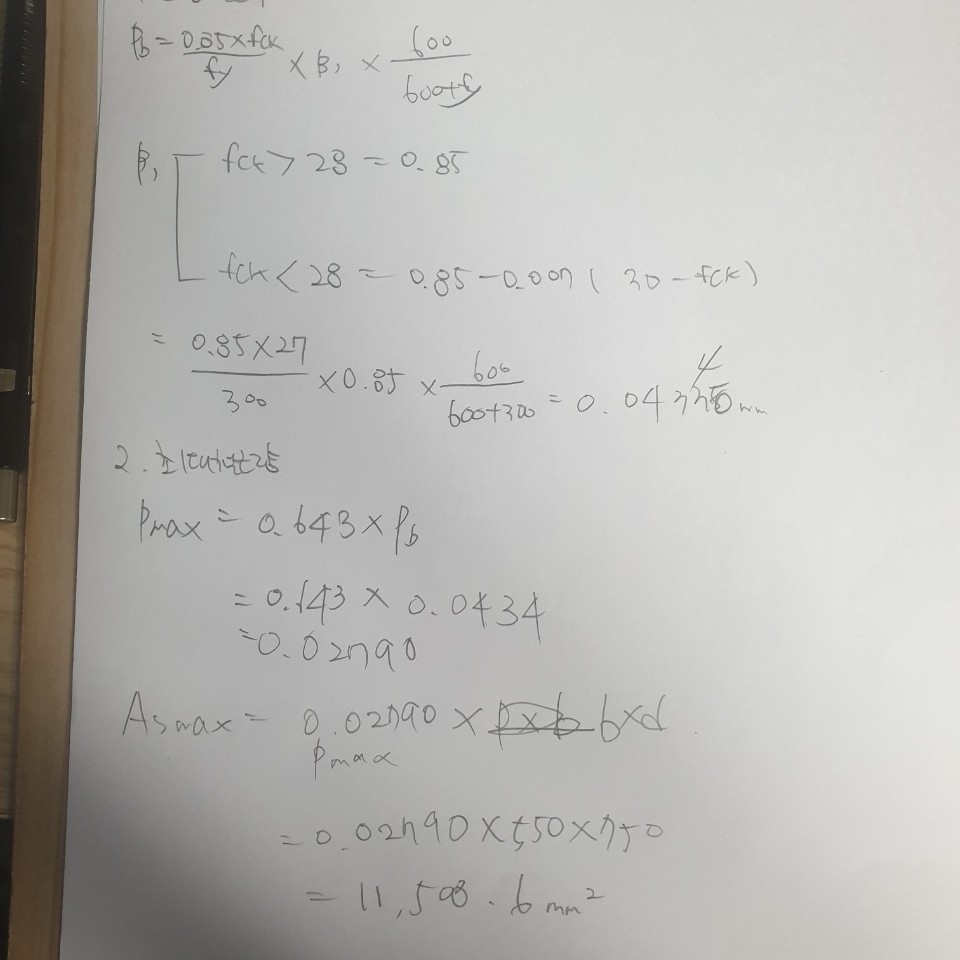 ρb = 0.85×fck / fy × β₁ × 600 / 600+fy
β₁ fck > 28 = 0.85
fck < 28 = 0.85 - 0.007 ( 30 - fck )
= 0.85×27 / 300 × 0.85 × 600 / 600+300 = 0.0433 mm
4
2. 최대배근량
ρmax = 0.643 × ρb
= 0.643 × 0.0434
= 0.02790
Asmax = 0.02790 × b×d
ρmax
= 0.02790 × 550 × 750
= 11,508.6 mm²